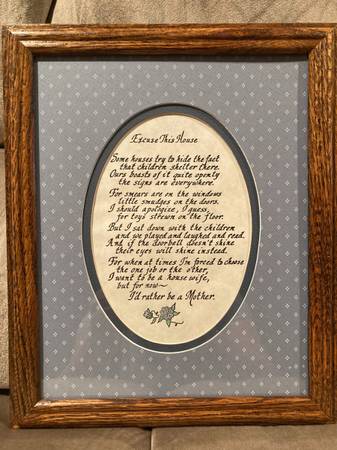 Excuse This House
Some houses try to hide the fact
that children shelter there.
Ours boasts of it quite openly
the signs are everywhere.
For smears are on the windows
little smudges on the doors.
I should apologize, I guess,
for toys strewn on the floor.
But I sat down with the children
and we played and laughed and read.
And if the doorbell doesn't shine
their eyes will shine instead.
For when at times I'm forced to choose
the one job or the other,
I want to be a housewife,
but for now~
I'd rather be a Mother.